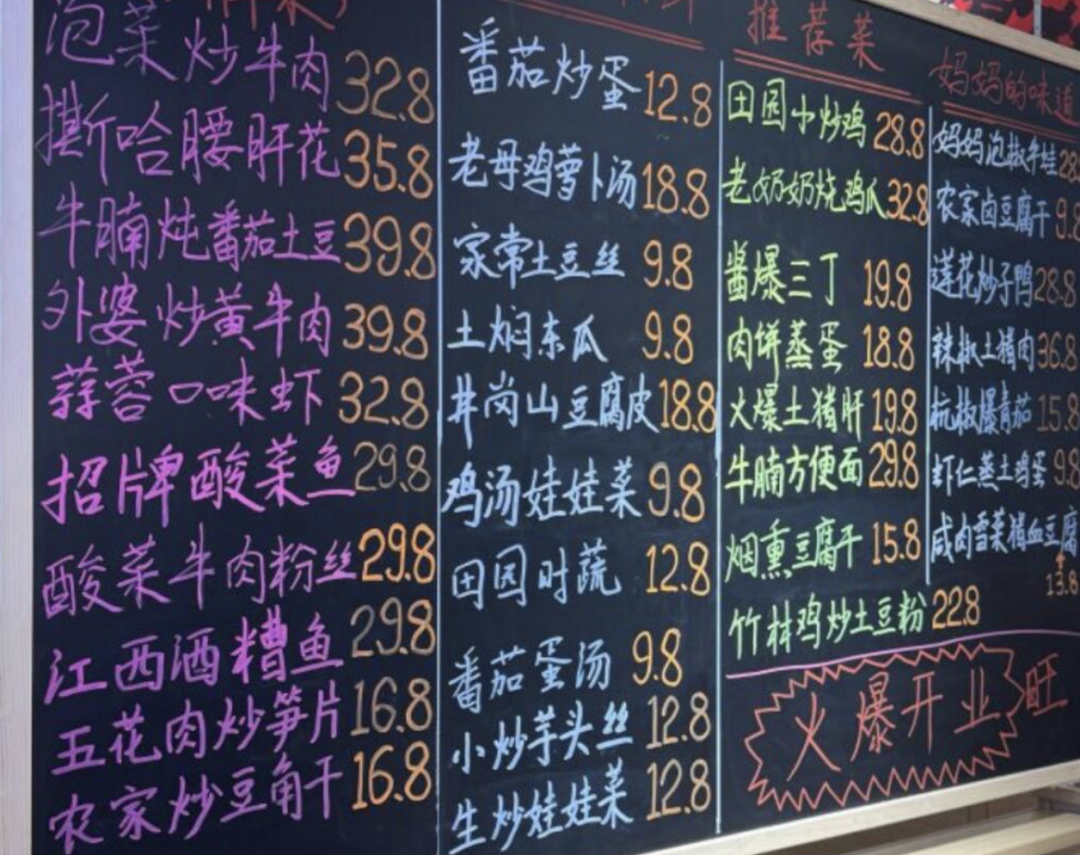 泡菜炒牛肉 32.8
撕哈腰肝花 35.8
牛腩炖番茄土豆 39.8
外婆炒黄牛肉 39.8
蒜蓉口味虾 32.8
招牌酸菜鱼 29.8
酸菜牛肉粉丝 29.8
江西酒糟鱼 29.8
五花肉炒笋片 16.8
农家炒豆角干 16.8
番茄炒蛋 12.8
老母鸡萝卜汤 18.8
家常土豆丝 9.8
土焖东瓜 9.8
井岗山豆腐皮 18.8
鸡汤娃娃菜 9.8
田园时蔬 12.8
番茄蛋汤 9.8
小炒芋头丝 12.8
生炒娃娃菜 12.8
推荐菜
田园小炒鸡 28.8
老奶奶烧鸡瓜 32.8
酱爆三丁 19.8
肉饼蒸蛋 18.8
火爆土猪肝 19.8
牛腩方便面 29.8
烟熏豆腐干 15.8
竹林鸡炒土豆粉 22.8
妈妈的味道
妈妈泡椒牛蛙 28
农家卤豆腐干 9.8
莲花炒子鸭 28.8
辣椒土猪肉 36.8
杭椒爆青茄 15.8
虾仁蒸土鸡蛋 9.8
咸肉雪菜猪血豆腐
13.8
火爆开业 旺